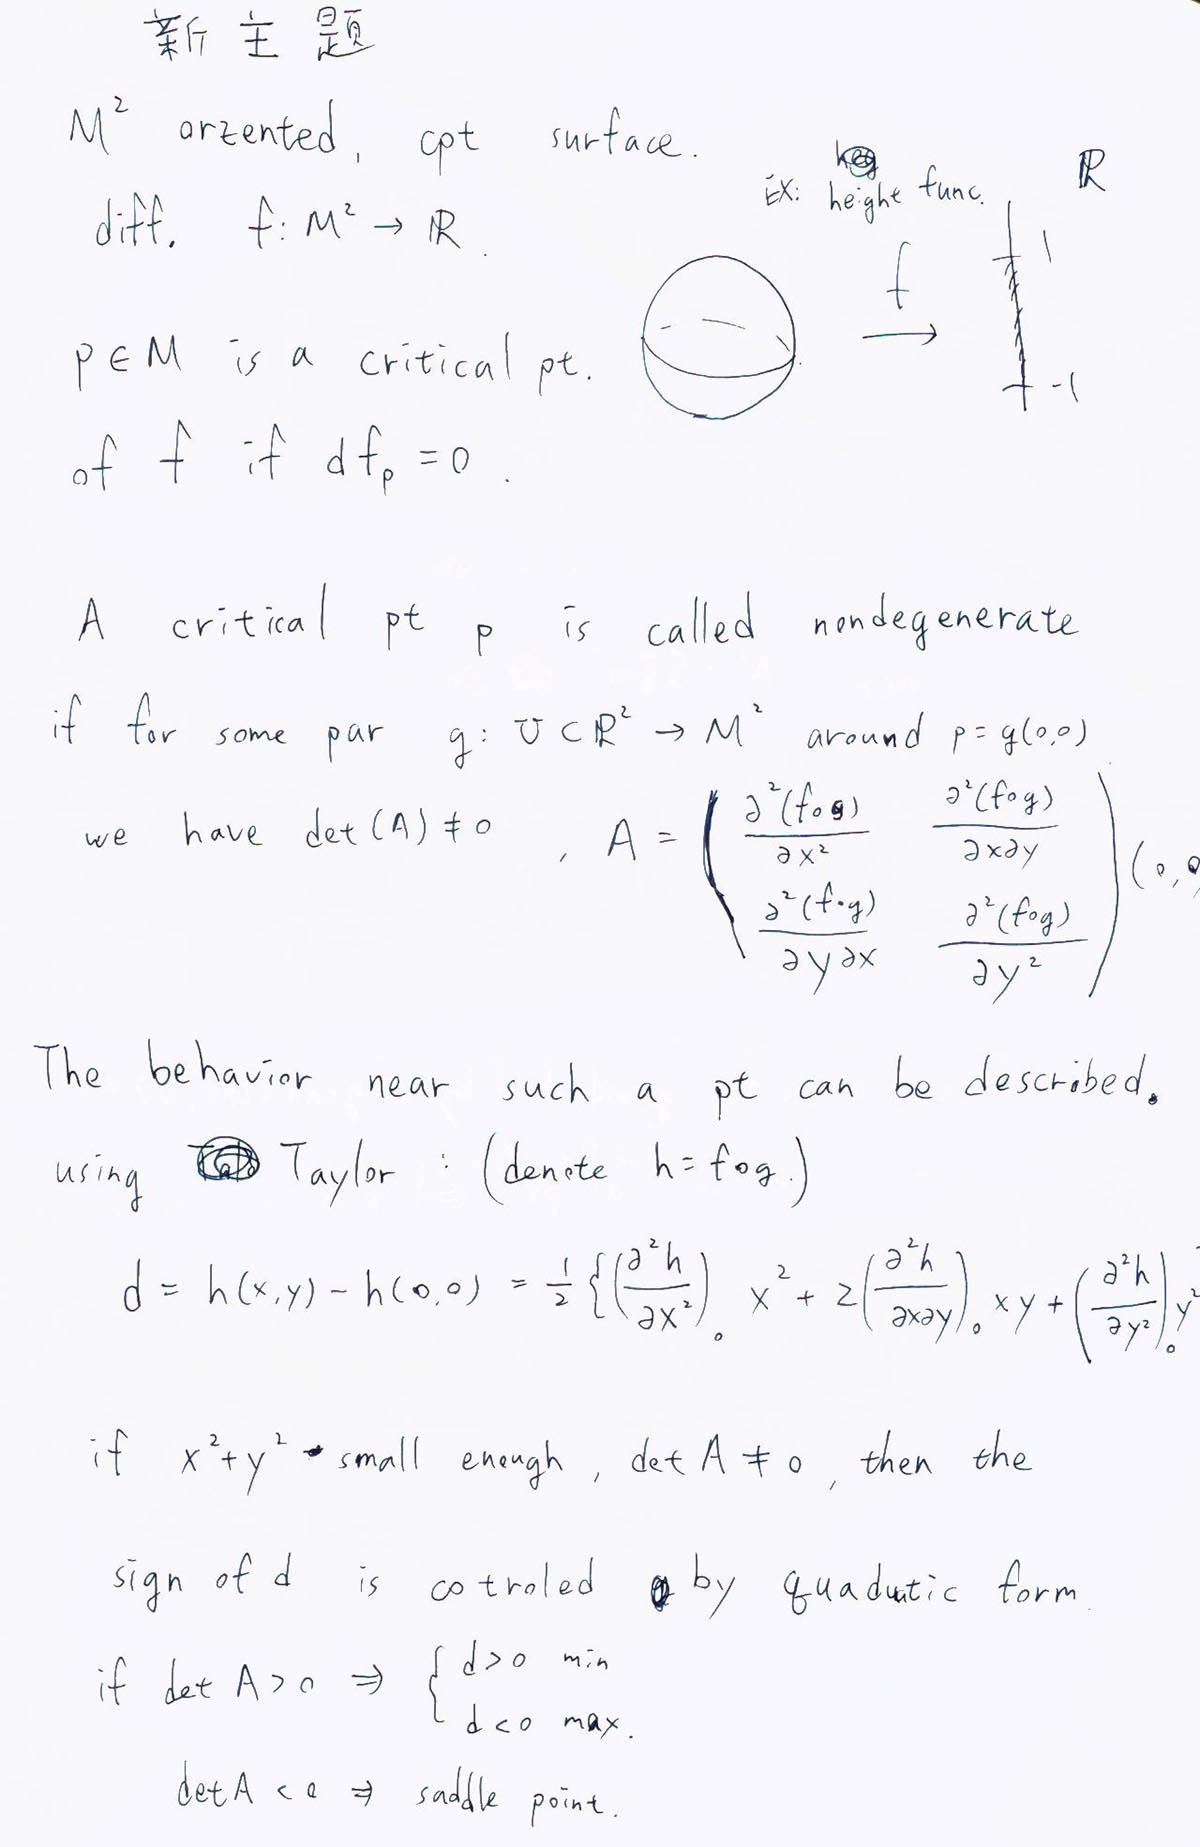 新主題
M² orzented, cpt surface.
diff. f: M² → ℝ.
Ex: height func.
ℝ
f
1
-1
p ∈ M is a critical pt.
of f if df_p = 0.
A critical pt p is called nondegenerate
if for some par g: U ⊂ ℝ² → M² around p = g(0,0)
we have det(A) ≠ 0, A = ( ∂²(f∘g)/∂x² ∂²(f∘g)/∂x∂y
∂²(f∘g)/∂y∂x ∂²(f∘g)/∂y² ) (0,0
The behavior near such a pt can be described.
using Taylor : (denote h = f∘g.)
d = h(x,y) - h(0,0) = 1/2 { (∂²h/∂x²)₀ x² + 2 (∂²h/∂x∂y)₀ xy + (∂²h/∂y²)₀ y²
if x² + y² small enough, det A ≠ 0, then the
sign of d is cotroled by quadutic form.
if det A > 0 ⇒ { d > 0 min
d < 0 max.
det A < 0 ⇒ saddle point.